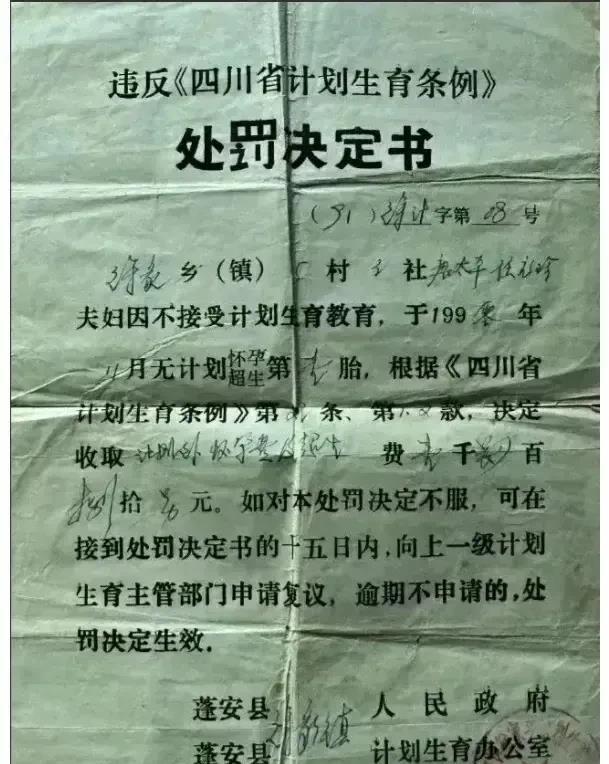 违反《四川省计划生育条例》
处罚决定书
(91) 字第 08 号
徐家乡(镇) 村 社
夫妇因不接受计划生育教育,于199 年
月无计划怀孕超生第 胎,根据《四川省
计划生育条例》第 条、第 款,决定
收取计划外怀孕费及超生 费壹千 百
捌拾 元。如对本处罚决定不服,可在
接到处罚决定书的十五日内,向上一级计划
生育主管部门申请复议,逾期不申请的,处
罚决定生效.
蓬安县 镇人民政府
蓬安县 计划生育办公室